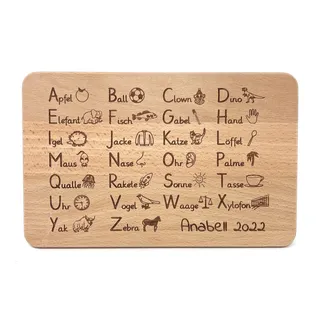 Apfel Ball Clown Dino
Elefant Fisch Gabel Hand
Igel Jacke Katze Löffel
Maus Nase Ohr Palme
Qualle Rakete Sonne Tasse
Uhr Vogel Waage Xylofon
Yak Zebra Anabell 2022